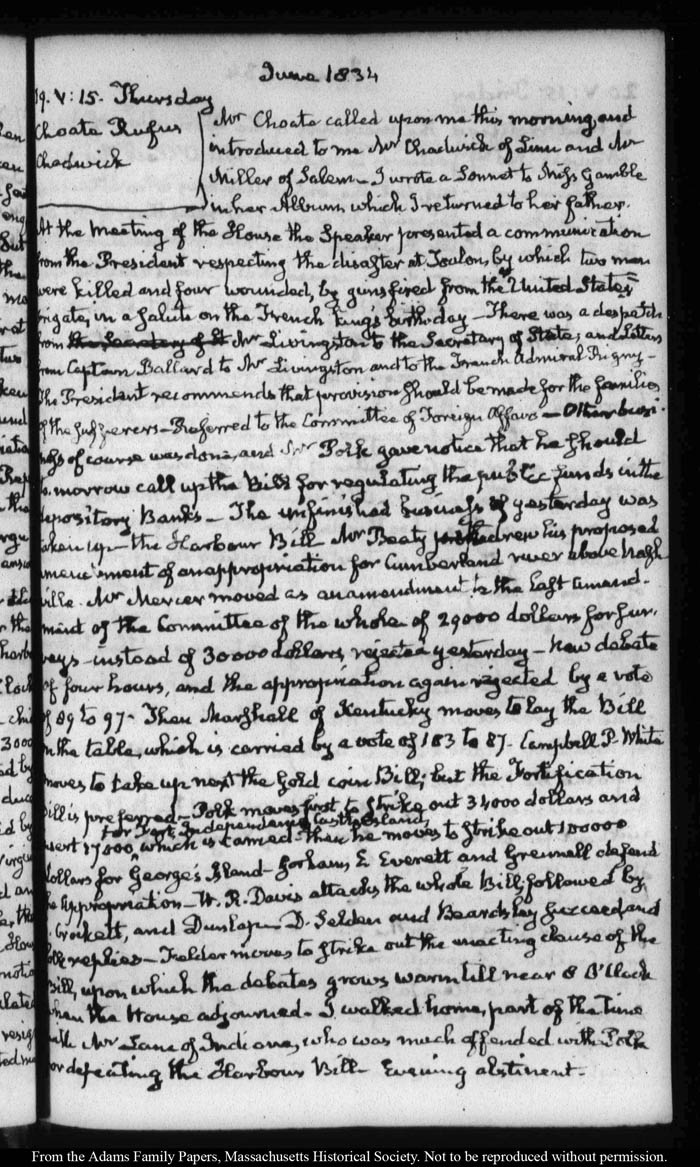 June 1834
19. V:15. Thursday
Choate Rufus
Chadwick
Mr Choate called upon me this morning, and
introduced to me Mr Chadwick of Linn and Mr
Miller of Salem — I wrote a Sonnet to Miss Gamble
in her Album, which I returned to her father.
At the meeting of the House the Speaker presented a communication
from the President respecting the disaster at Toulon, by which two men
were killed and four wounded, by guns fired from the United States,
frigate, in a salute on the French king's birth-day — There was a despatch
from the Secretary of St Mr Livingston to the Secretary of State, and Letters
from Captain Ballard to Mr Livingston and to the French Admiral Rigny —
The President recommends that provision should be made for the families
of the sufferers — Referred to the Committee of Foreign Affairs — Other busi-
ness of course was done, and Mr Polk gave notice that he should
to-morrow call up the Bill for regulating the public funds in the
depository Banks — The unfinished business of yesterday was
taken up — the Harbour Bill — Mr Beaty withdrew his proposed
amendment of an appropriation for Cumberland river above Nash-
ville. Mr Mercer moved as an amendment to the last amend-
ment of the Committee of the whole of 29000 dollars for sur-
veys — instead of 30000 dollars, rejected yesterday — New debate
of four hours, and the appropriation again rejected by a vote
of 89 to 97 — Then Marshall of Kentucky moves to lay the Bill
on the table, which is carried by a vote of 103 to 87 — Campbell P. White
moves to take up next the Gold coin Bill; but the Fortification
Bill is preferred — Polk moves first to strike out 34000 dollars and
for Fort Independence, Castle Island,
insert 17000, which is carried — then he moves to strike out 100000
dollars for George's Island — Gorham, E. Everett and Grennell defend
the appropriation — W. R. Davis attacks the whole Bill; followed by
Crockett, and Dunlap — D. Selden and Beardsley succeed and
Polk replies — Felder moves to strike out the enacting clause of the
Bill, upon which the debates grows warm till near 8 O'Clock
when the House adjourned — I walked home, part of the time
with Mr Lane of Indiana, who was much offended with Polk
for defeating the Harbour Bill — Evening abstinent —
From the Adams Family Papers, Massachusetts Historical Society. Not to be reproduced without permission.